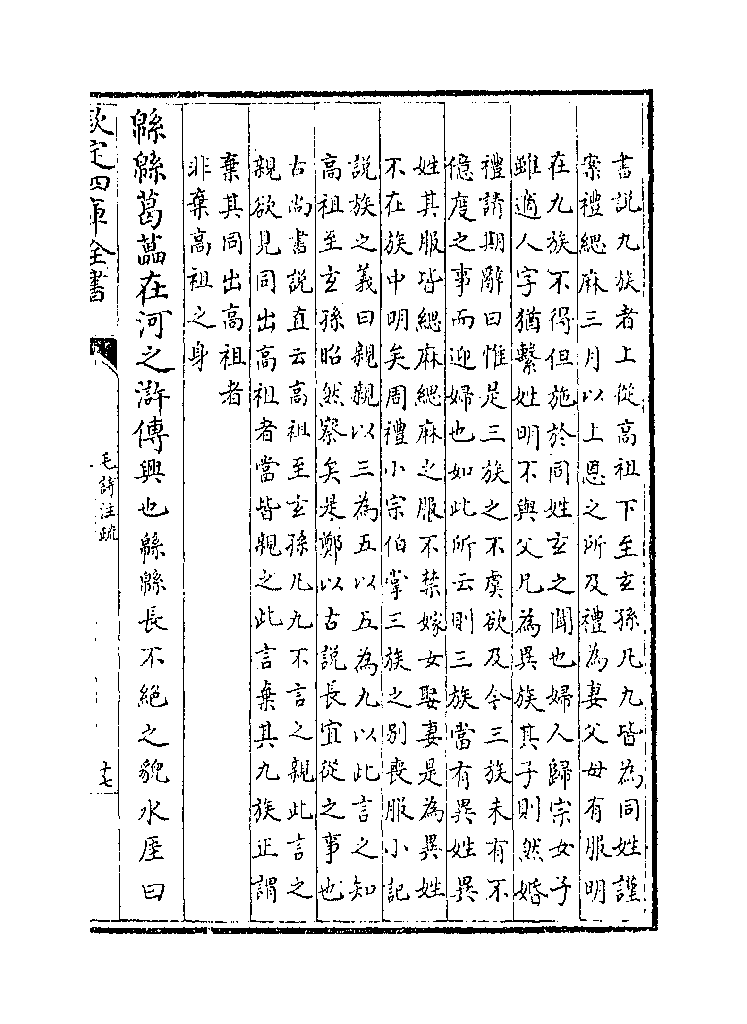 書說九族者上從高祖下至玄孫凡九皆為同姓謹
案禮緦麻三月以上恩之所及禮為妻父母有服明
在九族不得但施於同姓玄之聞也婦人歸宗女子
雖適人字猶繫姓明不與父凡為異族其子則然婚
禮請期辭曰惟是三族之不虞欲及今三族未有不
億度之事而迎婦也如此所云則三族當有異姓異
姓其服皆緦麻緦麻之服不禁嫁女娶妻是為異姓
不在族中明矣周禮小宗伯掌三族之別喪服小記
說族之義曰親親以三為五以五為九以此言之知
高祖至玄孫昭然察矣是鄭以古說長宜從之事也
古尚書說直云高祖至玄孫凡九不言之親此言之
親欲見同出高祖者當皆親之此言棄其九族正謂
棄其同出高祖者
非棄高祖之身
緜緜葛藟在河之滸傳興也緜緜長不絕之貌水厓曰
欽定四庫全書
毛詩注疏
十七